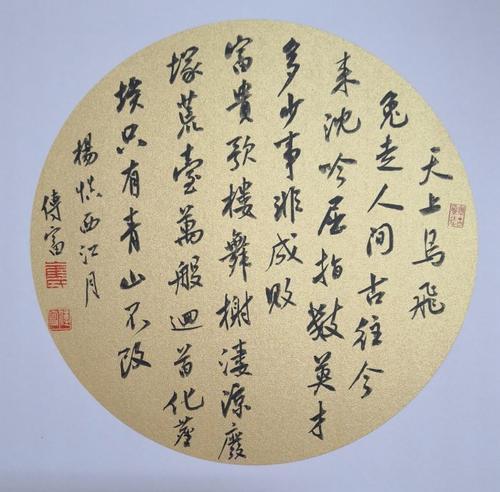 天上烏飛
兔走人间古往今
来沈吟屈指数英才
多少事非成敗
富貴歌樓舞榭淒涼廢
塚荒臺萬般迴首化塵
埃只有青山不改
楊慎西江月
傳富